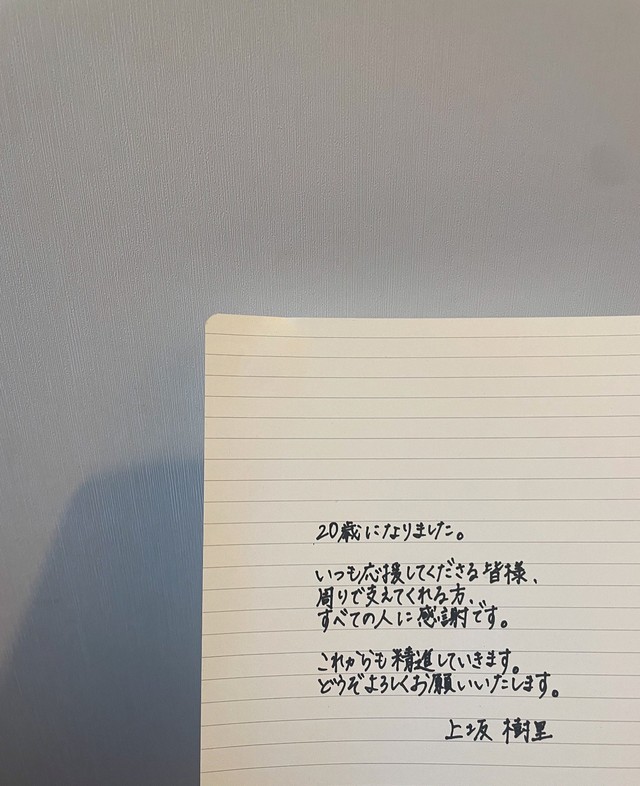 20歳になりました。
いつも応援してくださる皆様、
周りで支えてくれる方、
すべての人に感謝です。
これからも精進していきます。
どうぞよろしくお願いいたします。
上坂 樹里